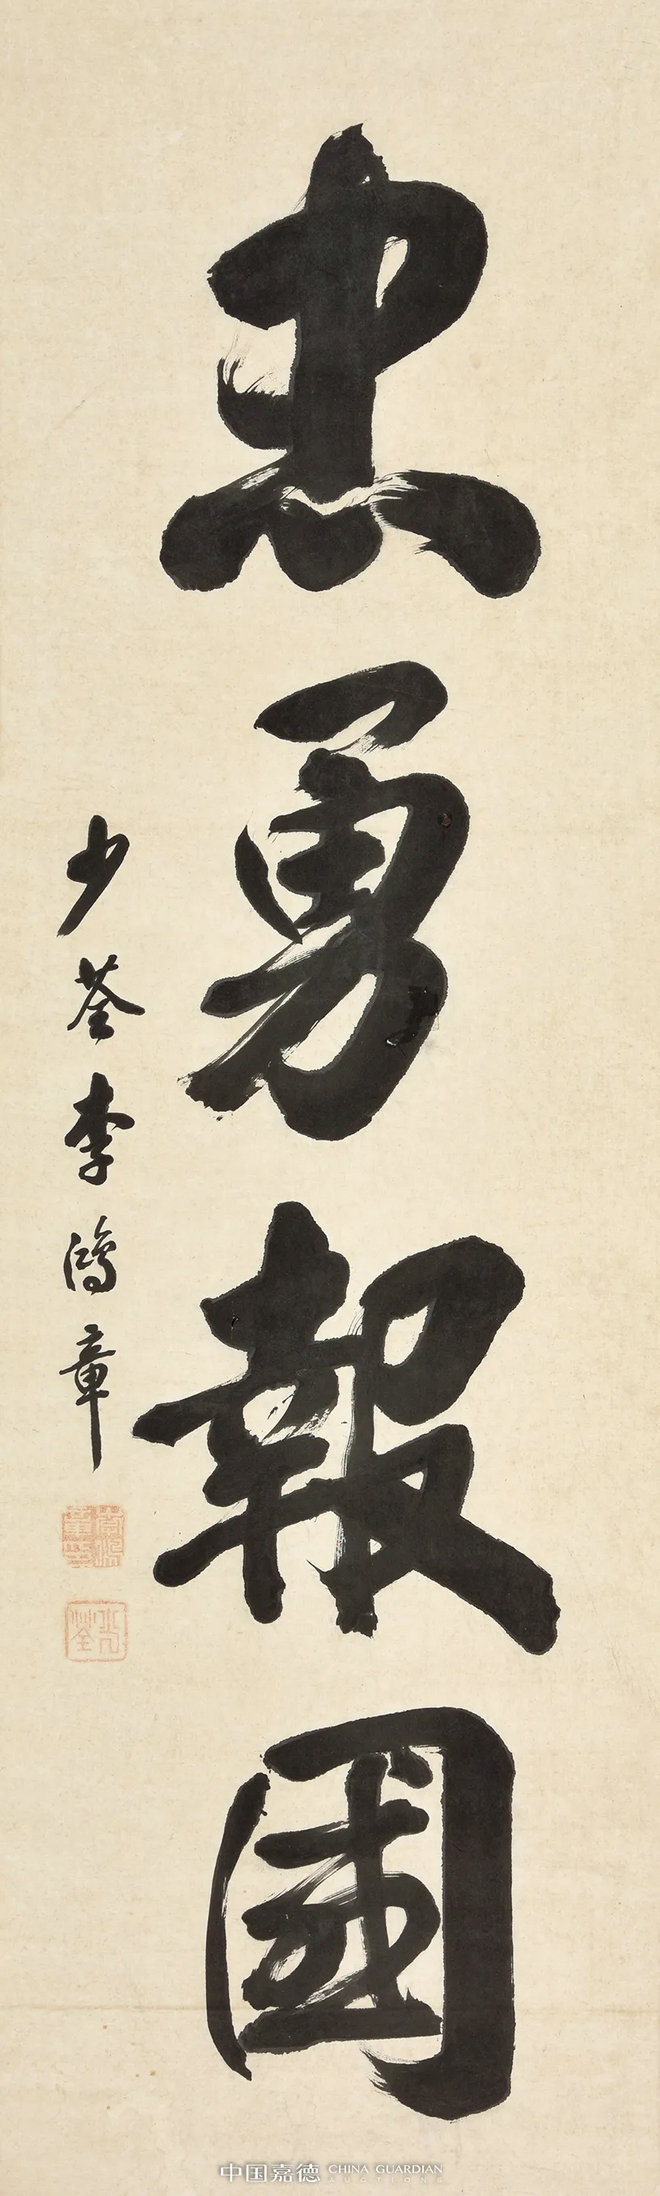 忠勇報國
少荃李鴻章
少荃
中国嘉德 CHINA GUARDIAN
AUCTIONS